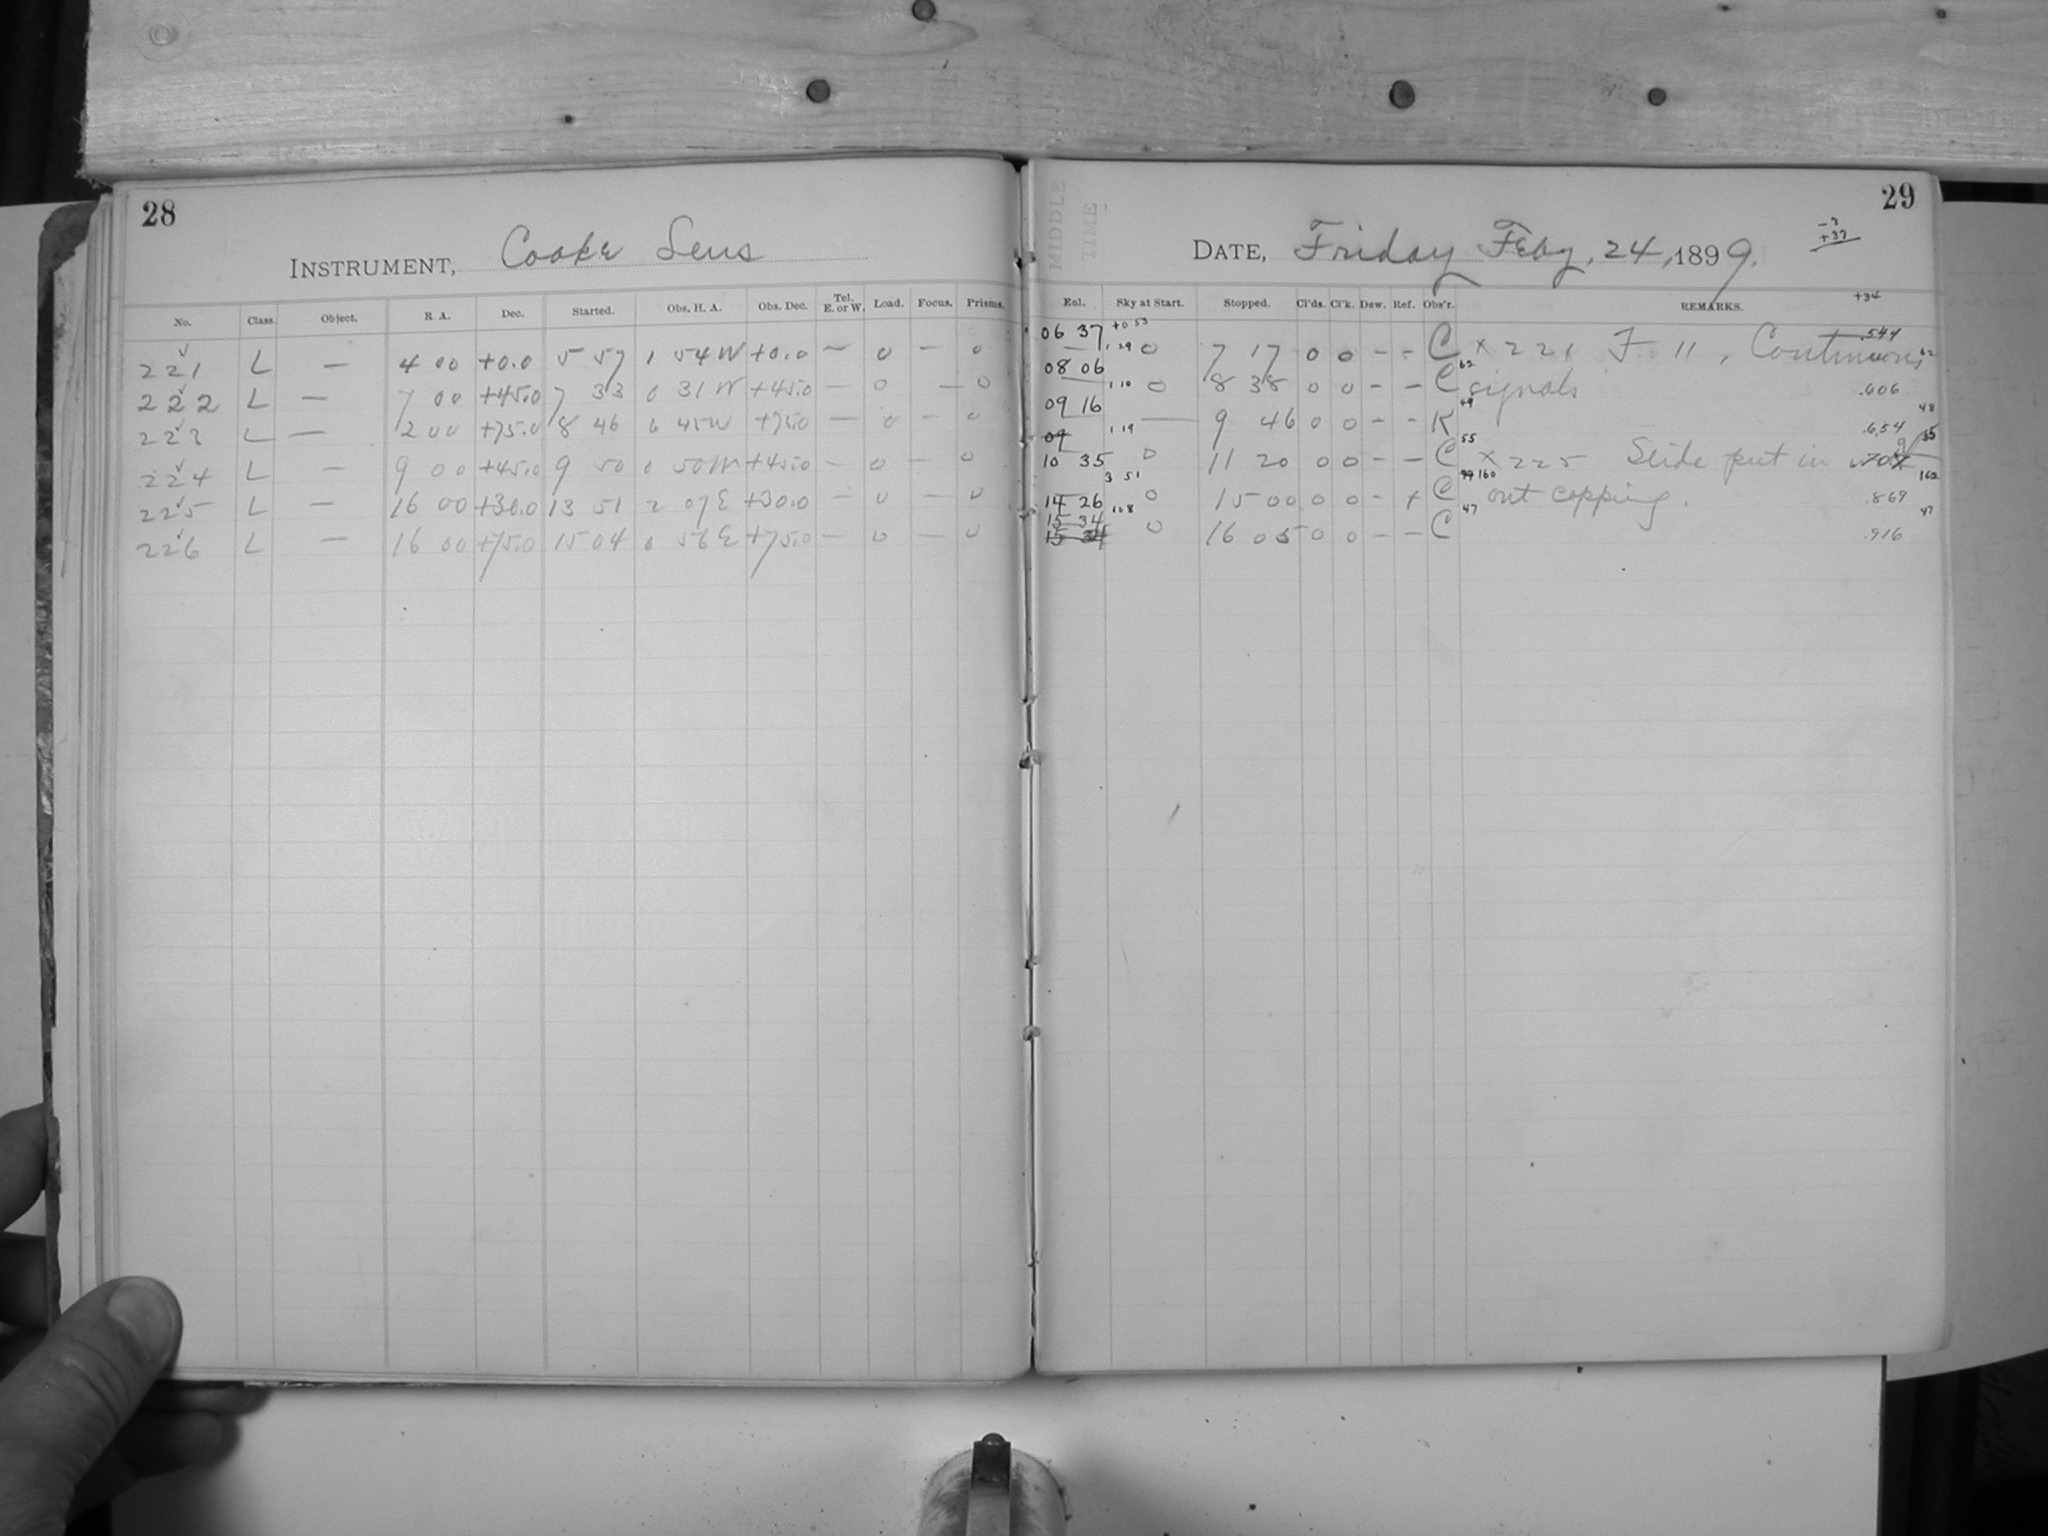 28
INSTRUMENT, Cooke Lens
No. Class. Object. R. A. Dec. Started. Obs. H. A. Obs. Dec. Tel. E. or W. Load. Focus. Prisms.
221 L — 4 00 +0.0 5 57 1 54 W +0.0 — 0 — 0
222 L — 7 00 +45.0 7 33 0 31 W +45.0 — 0 — 0
223 L — 2 00 +75.0 8 46 6 45 W +75.0 — 0 — 0
224 L — 9 00 +45.0 9 50 0 50 W +45.0 — 0 — 0
225 L — 16 00 +30.0 13 51 2 07 E +30.0 — 0 — 0
226 L — 16 00 +75.0 15 04 0 56 E +75.0 — 0 — 0
29
MIDDLE
TIME
DATE, Friday Feby. 24, 1899.
-3
+37
Enl. Sky at Start. Stopped. Cl'ds. Cl'k. Dew. Ref. Obs'r. REMARKS. +34
06 37 +0 53 0 7 17 0 0 - - C × 221 F. 11, Continuous .544
08 06 1 29 0 8 38 0 0 - - C 62 signals .606 62
09 16 1 10 — 9 46 0 0 - - K 49 .654 48
09
10 35 1 19 0 11 20 0 0 - - C 55 × 225 Slide put in with 
14 26 3 51 0 15 00 0 0 - + C 160 out capping. .869 160
15 34 108 0 16 05 0 0 - - C 47 .916 47
15 34